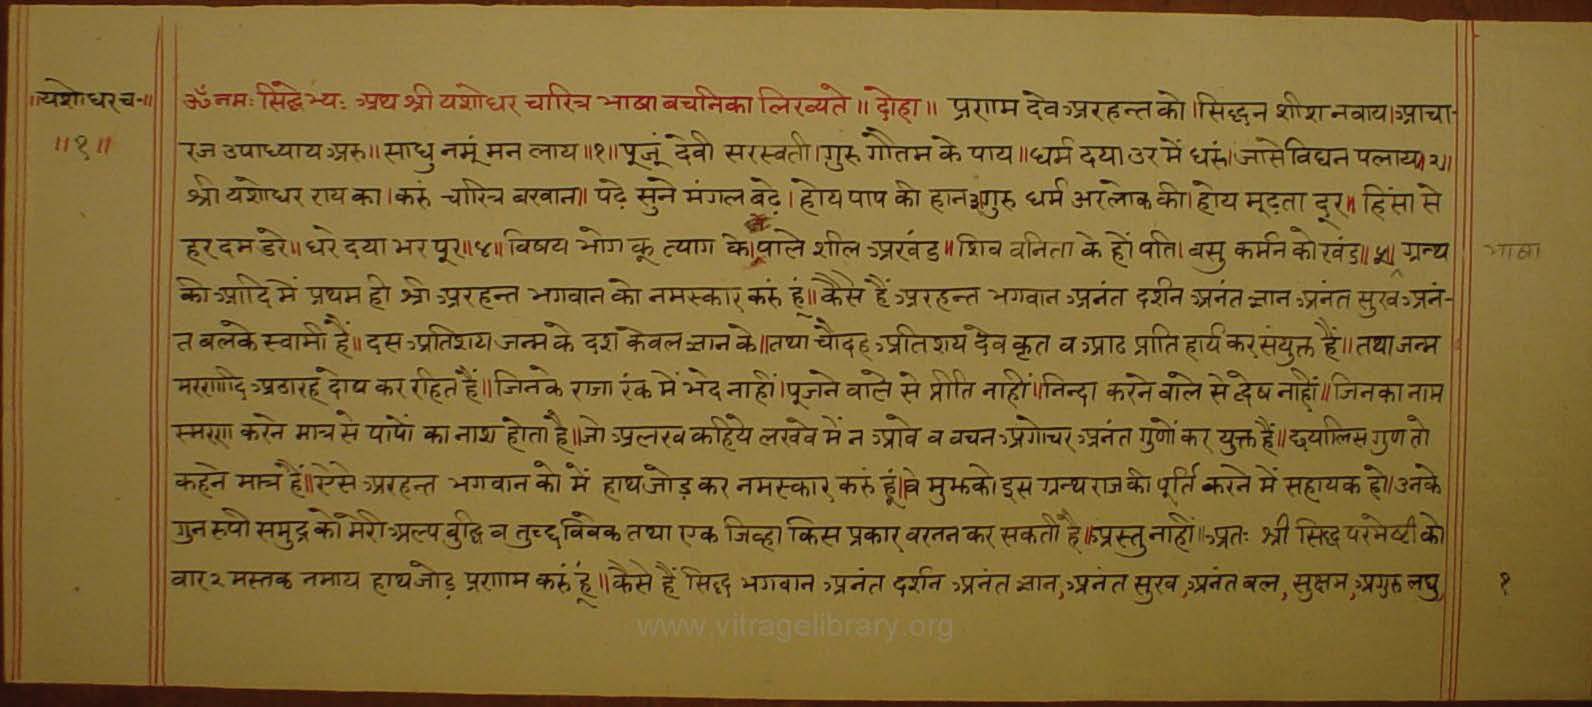 ॥यशोधरच॰॥
॥१॥
ॐ नमः सिद्धेभ्यः अथ श्री यशोधर चारित्र भाषा बचनिका लिख्यते ॥ दोहा ॥ प्रणाम देव अरहन्त को । सिद्धन शीश नवाय । आचा-
रज उपाध्याय अरु ॥ साधु नमूं मन लाय ॥१॥ पूजूं देवी सरस्वती । गुरु गौतम के पाय ॥ धर्म दया उर में धरूं । जासे विघन पलाय ॥२॥
श्री यशोधर राय का । करुं चारित्र बखान ॥ पढ़े सुने मंगल बढ़े । होय पाप की हान ॥३॥ गुरु धर्म अरलोक की । होय मूढ़ता दूर ॥ हिंसा से
हरदम डरे ॥ धरे दया भर पूर ॥४॥ विषय भोग कू त्याग के । पाले शील अखंड ॥ शिव वनिता के हों पति । वसु कर्मन को खंड ॥५॥ ग्रन्थ
की आदि में प्रथम ही श्री अरहन्त भगवान को नमस्कार करुं हूं ॥ कैसे हैं अरहन्त भगवान अनंत दर्शन अनंत ज्ञान अनंत सुख अनं-
त बलके स्वामी हैं ॥ दस अतिशय जन्म के दश केवल ज्ञान के ॥ तथा चौदह अतिशय देव कृत व आठ प्रातिहार्य कर संयुक्त हैं ॥ तथा जन्म
मरणादि अठारह दोष कर रहित हैं ॥ जिनके राजा रंक में भेद नाहीं । पूजने वाले से प्रीति नाहीं ॥ निन्दा करने वाले से द्वेष नाहीं ॥ जिनका नाम
स्मरण करने मात्र से पापों का नाश होता है ॥ जो अलख कहिये लखवे में न आवे व वचन अगोचर अनंत गुणों कर युक्त हैं ॥ छयालिस गुण तो
कहने मात्र हैं ॥ ऐसे अरहन्त भगवान को में हाथ जोड़ कर नमस्कार करुं हूं ॥ वे मुझको इस ग्रन्थराज की पूर्ति करने में सहायक हो ॥ उनके
गुन रुपी समुद्र को मेरी अल्प बुद्धि व तुच्छ विवेक तथा एक जिव्हा किस प्रकार वरनन कर सकती है ॥ अस्तु नाहीं ॥ अतः श्री सिद्ध परमेष्टी को
वार २ मस्तक नमाय हाथ जोड़ प्रणाम करुं हूं ॥ कैसे हैं सिद्ध भगवान अनंत दर्शन अनंत ज्ञान, अनंत सुख, अनंत बल, सुक्षम, अगुरु लघु,
भाषा
१
www.vitragelibrary.org